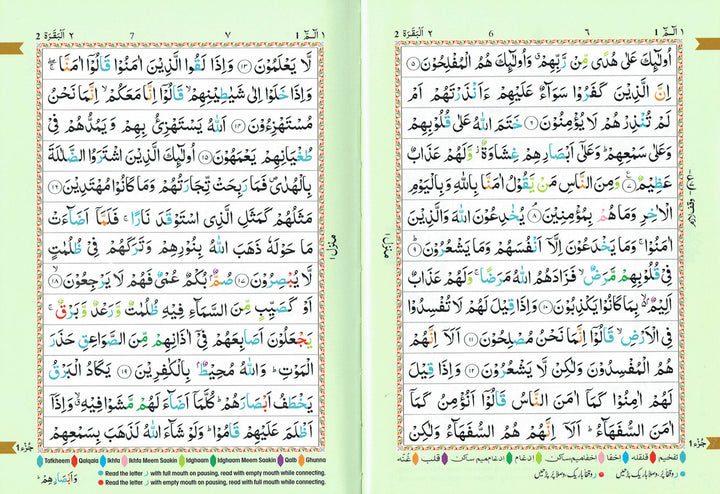 الٓمّٓ ١ 1 ٦ 6 اَلْبَقَرَة ٢ 2
اُولٰٓئِكَ عَلٰى هُدًى مِّنْ رَّبِّهِمْ ۙ وَاُولٰٓئِكَ هُمُ الْمُفْلِحُوْنَ ﴿٥﴾
اِنَّ الَّذِيْنَ كَفَرُوْا سَوَآءٌ عَلَيْهِمْ ءَاَنْذَرْتَهُمْ اَمْ
لَمْ تُنْذِرْهُمْ لَا يُؤْمِنُوْنَ ﴿٦﴾ خَتَمَ اللّٰهُ عَلٰى قُلُوْبِهِمْ
وَعَلٰى سَمْعِهِمْ ؕ وَعَلٰٓى اَبْصَارِهِمْ غِشَاوَةٌ ۙ وَّلَهُمْ عَذَابٌ
عَظِيْمٌ ﴿٧﴾ وَمِنَ النَّاسِ مَنْ يَّقُوْلُ اٰمَنَّا بِاللّٰهِ وَبِالْيَوْمِ
الْاٰخِرِ وَمَا هُمْ بِمُؤْمِنِيْنَ ﴿٨﴾ يُخٰدِعُوْنَ اللّٰهَ وَالَّذِيْنَ
اٰمَنُوْا ۚ وَمَا يَخْدَعُوْنَ اِلَّآ اَنْفُسَهُمْ وَمَا يَشْعُرُوْنَ ﴿٩﴾
فِيْ قُلُوْبِهِمْ مَّرَضٌ ۙ فَزَادَهُمُ اللّٰهُ مَرَضًا ۚ وَلَهُمْ عَذَابٌ
اَلِيْمٌ ۢ ۙ بِمَا كَانُوْا يَكْذِبُوْنَ ﴿١٠﴾ وَاِذَا قِيْلَ لَهُمْ لَا تُفْسِدُوْا
فِى الْاَرْضِ ۙ قَالُوْٓا اِنَّمَا نَحْنُ مُصْلِحُوْنَ ﴿١١﴾ اَلَآ اِنَّهُمْ
هُمُ الْمُفْسِدُوْنَ وَلٰكِنْ لَّا يَشْعُرُوْنَ ﴿١٢﴾ وَاِذَا قِيْلَ
لَهُمْ اٰمِنُوْا كَمَآ اٰمَنَ النَّاسُ قَالُوْٓا اَنُؤْمِنُ كَمَآ
اٰمَنَ السُّفَهَآءُ ؕ اَلَآ اِنَّهُمْ هُمُ السُّفَهَآءُ وَلٰكِنْ
منزل ١
جُزْء ١ 1
تفخیم قلقله اخفا اخفامیم ساکن ادغام ادغام میم ساکن قلب غنّه
الٓمّٓ ١ 1 ٧ 7 اَلْبَقَرَة ٢ 2
لَّا يَعْلَمُوْنَ ﴿١٣﴾ وَاِذَا لَقُوا الَّذِيْنَ اٰمَنُوْا قَالُوْٓا اٰمَنَّا ۚۖ
وَاِذَا خَلَوْا اِلٰى شَيٰطِيْنِهِمْ ۙ قَالُوْٓا اِنَّا مَعَكُمْ ۙ اِنَّمَا نَحْنُ
مُسْتَهْزِءُوْنَ ﴿١٤﴾ اَللّٰهُ يَسْتَهْزِئُ بِهِمْ وَيَمُدُّهُمْ فِيْ
طُغْيَانِهِمْ يَعْمَهُوْنَ ﴿١٥﴾ اُولٰٓئِكَ الَّذِيْنَ اشْتَرَوُا الضَّلٰلَةَ
بِالْهُدٰى ۪ فَمَا رَبِحَتْ تِّجَارَتُهُمْ وَمَا كَانُوْا مُهْتَدِيْنَ ﴿١٦﴾
مَثَلُهُمْ كَمَثَلِ الَّذِى اسْتَوْقَدَ نَارًا ۚ فَلَمَّآ اَضَآءَتْ
مَا حَوْلَهٗ ذَهَبَ اللّٰهُ بِنُوْرِهِمْ وَتَرَكَهُمْ فِيْ ظُلُمٰتٍ
لَّا يُبْصِرُوْنَ ﴿١٧﴾ صُمٌّ ۢ بُكْمٌ عُمْيٌ فَهُمْ لَا يَرْجِعُوْنَ ﴿١٨﴾
اَوْ كَصَيِّبٍ مِّنَ السَّمَآءِ فِيْهِ ظُلُمٰتٌ وَّرَعْدٌ وَّبَرْقٌ ۚ
يَجْعَلُوْنَ اَصَابِعَهُمْ فِيْٓ اٰذَانِهِمْ مِّنَ الصَّوَاعِقِ حَذَرَ
الْمَوْتِ ؕ وَاللّٰهُ مُحِيْطٌ ۢ بِالْكٰفِرِيْنَ ﴿١٩﴾ يَكَادُ الْبَرْقُ
يَخْطَفُ اَبْصَارَهُمْ ؕ كُلَّمَآ اَضَآءَ لَهُمْ مَّشَوْا فِيْهِ ۙ وَاِذَآ
اَظْلَمَ عَلَيْهِمْ قَامُوْا ؕ وَلَوْ شَآءَ اللّٰهُ لَذَهَبَ بِسَمْعِهِمْ
منزل ١
جُزْء ١ 1
Tafkheem Qalqala Ikhfa Ikhfa Meem Saakin Idghaam Idghaam Meem Saakin Qalb Ghunna
Read the letter ر with full mouth on pausing, read with empty mouth while connecting.
Read the letter ر with empty mouth on pausing, read with full mouth while connecting.
وَاَبْصَارِهِمْ ؕ